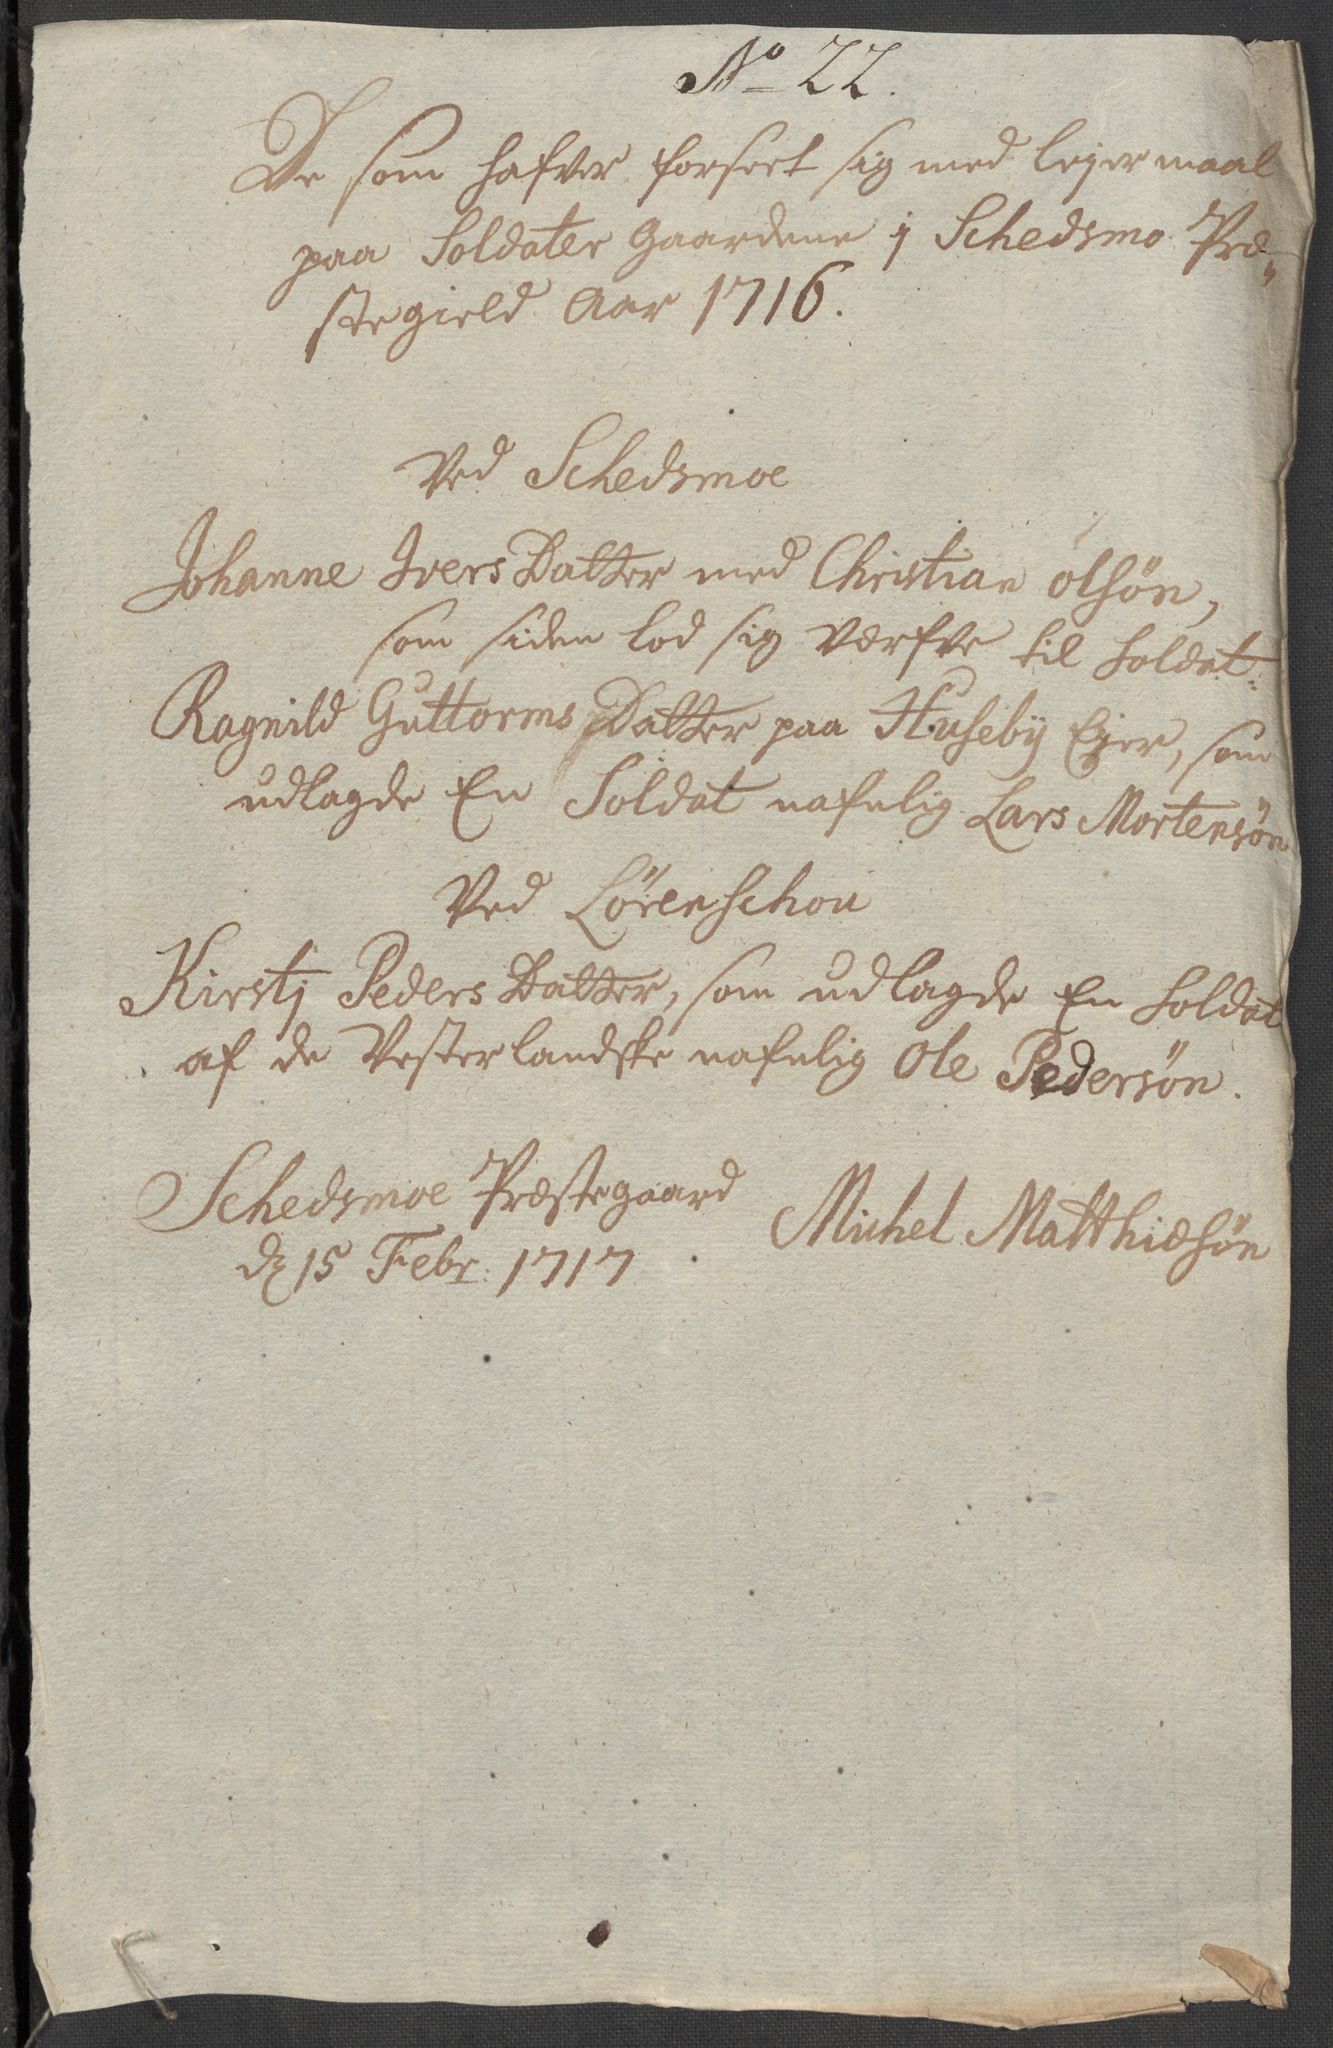 No 22.
De som hafver forseet sig med lejermaal
paa Soldater gaardene j Schedsmo Præ-
stegield Aar 1716.
Ved Schedsmoe
Johanne Ivers Datter med Christian olsön,
som siden lod sig verfve til Soldat.
Ragnild Guttorms Datter paa Huseby Ejer, som
udlagde En Soldat nafnlig Lars Mortensön
Ved Lörenschou
Kirstj Peders Datter, som udlagde En Soldat
af de Vesterlandske nafnlig Ole Pedersön.
Schedsmoe Præstegaard
d 15 Febr: 1717
Michel Matthiesön